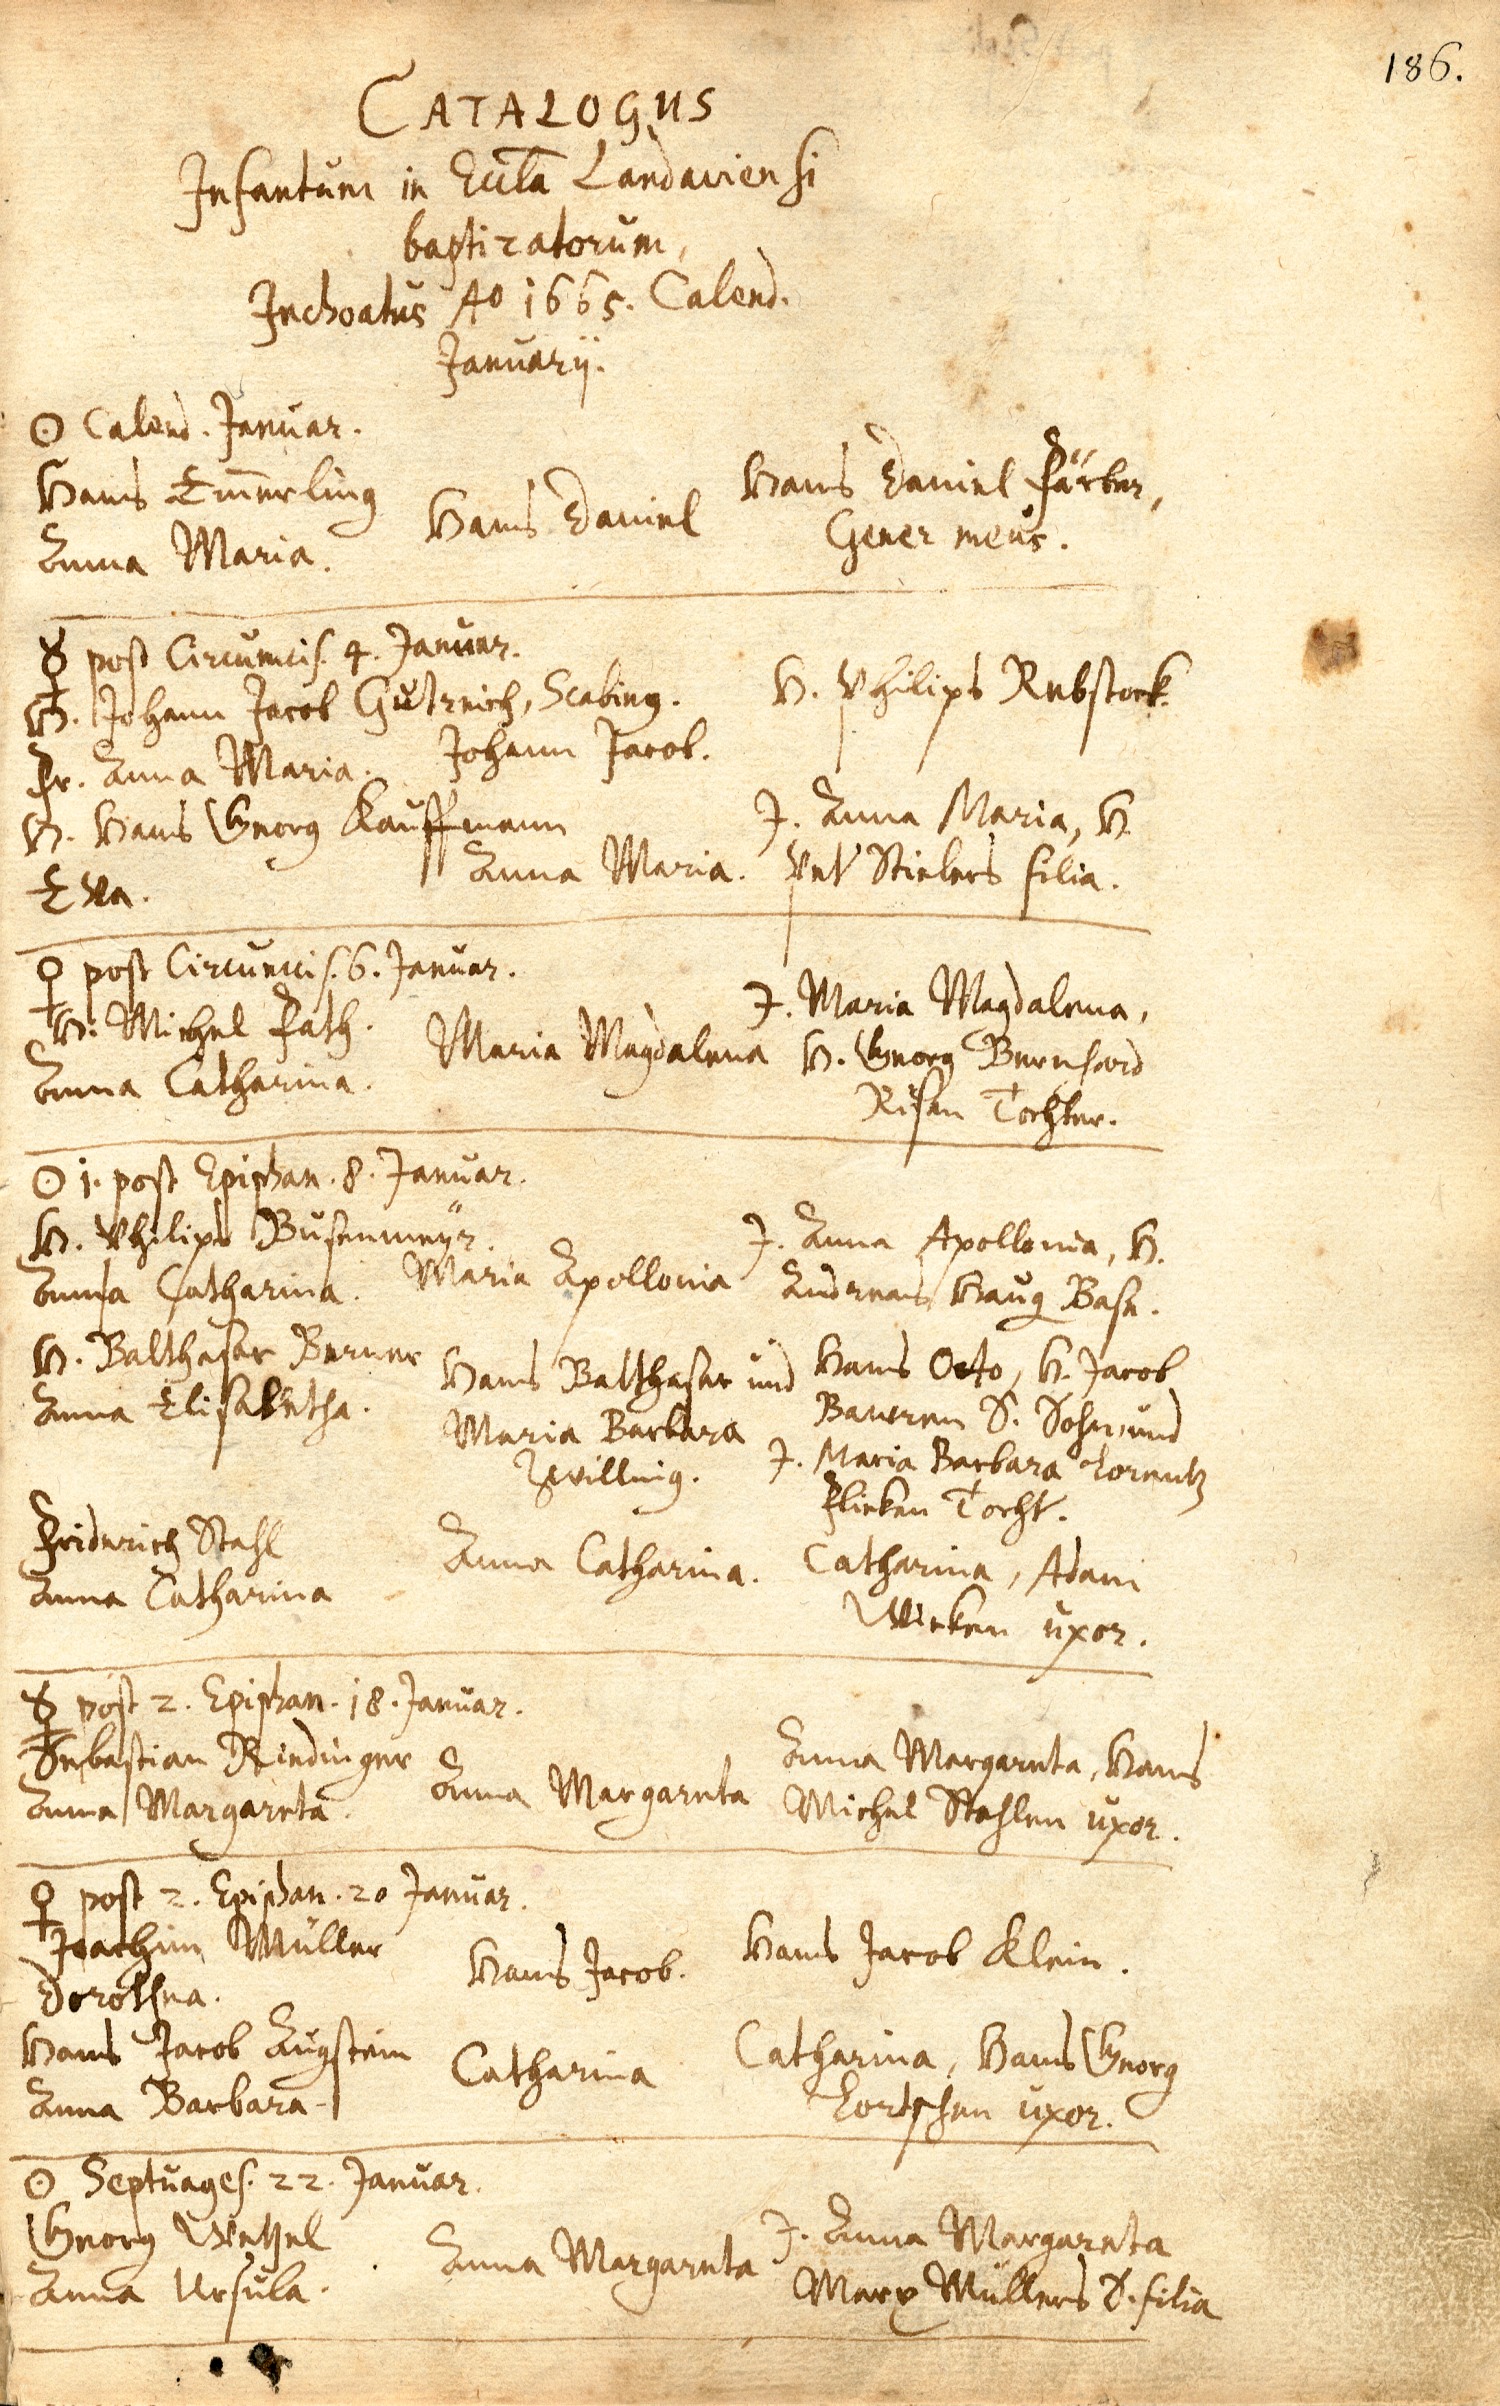 186.
CATALOGUS
Infantum in Eccla Landaviensi
baptizatorum,
Inchoatus Ao 1665. Calend.
Januarij.
☉ Calend. Januar.
Hans Em̄erling
Anna Maria.
Hans Daniel
Hans Daniel Färber,
Gener meus.
☿ post Circumcis. 4. Januar.
H. Johann Jacob Gutreich, Scabinus.
Fr. Anna Maria.
Johann Jacob.
H. Philips Rebstock.
H. Hans Georg Kauffmann
Eva.
Anna Maria.
J. Anna Maria, H.
Vet Stielers filia.
♀ post Circumcis. 6. Januar.
H. Michel Fath.
Anna Catharina.
Maria Magdalena
J. Maria Magdalena,
H. Georg Bernhard
Risen Tochter.
☉ 1. post Epiphan. 8. Januar.
H. Philips Busenmeÿr.
Anna Catharina.
Maria Apollonia
J. Anna Apollonia, H.
Andreas Haug Base.
H. Balthasar Berner
Anna Elisabetha.
Hans Balthasar und
Maria Barbara
Zwilling.
Hans Otto, H. Jacob
Bawren S. Sohn, und
J. Maria Barbara Lorentz
Flicken Tocht.
Friderich Stahl
Anna Catharina
Anna Catharina.
Catharina, Adam
Wicken uxor.
☿ post 2. Epiphan. 18. Januar.
Sebastian Riedinger
Anna Margareta.
Anna Margareta
Anna Margareta, Hans
Michel Stahlen uxor.
♀ post 2. Epiphan. 20 Januar.
Joachim Müller
Dorothea.
Hans Jacob.
Hans Jacob Klein.
Hans Jacob Augstein
Anna Barbara
Catharina
Catharina, Hans Georg
Lortschen uxor.
☉ Septuages. 22. Januar.
Georg Wetzel
Anna Ursula.
Anna Margareta
J. Anna Margareta
Marx Müllers S. filia